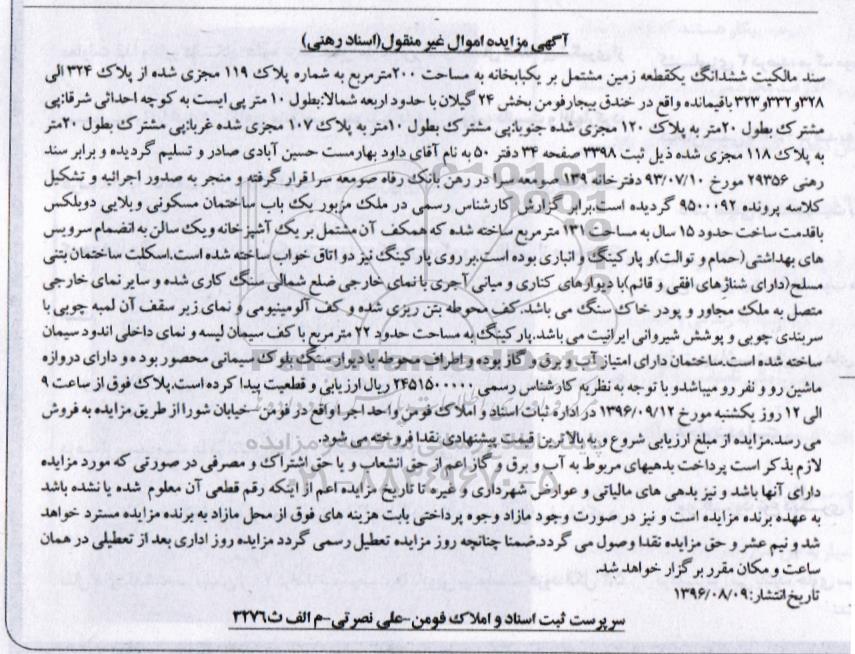 آگهی مزایده اموال غیر منقول(اسناد رهنی)
سند مالکیت ششدانگ یکقطعه زمین مشتمل بر یکبابخانه به مساحت ۲۰۰مترمربع به شماره پلاک ۱۱۹ مجزی شده از پلاک ۳۲۴ الی
۳۲۸و۳۳۶و۳۷۳ باقیمانده واقع در خندق بیجارفومن بخش ۲۴ گیلان با حدود اربعه شمالا:بطول ۱۰ متر پی ایست به کوچه احداثی شرقا:پی
مشترک بطول ۲۰متر به پلاک ۱۲۰ مجزی شده جنوبا:پی مشترک بطول ۱۰متر به پلاک ۱۰۷ مجزی شده غربا:پی مشترک بطول ۲۰متر
به پلاک ۱۱۸ مجزی شده ذیل ثبت ۳۳۹۸ صفحه ۳۴ دفتر ۵۰ به نام آقای داود بهارمست حسین آبادی صادر و تسلیم گردیده و برابر سند
رهنی ۲۹۳۵۶ مورخ ۹۳/۰۷/۱۰ دفترخانه ۱۳۹ صومعه سرا در رهن بانک رفاه صومعه سرا قرار گرفته و منجر به صدور اجرائیه و تشکیل
کلاسه پرونده ۹۵۰۰۰۹۲ گردیده است.برابر گزارش کارشناس رسمی در ملک مزبور یک باب ساختمان مسکونی و یلایی دوبلکس
باقدمت ساخت حدود ۱۵ سال به مساحت ۱۳۱ مترمربع ساخته شده که همکف آن مشتمل بر یک آشپزخانه ویک سالن به انضمام سرویس
های بهداشتی(حمام و توالت)و پارکینگ و انباری بوده است.بر روی پارکینگ نیز دو اتاق خواب ساخته شده است.اسکلت ساختمان بتنی
مسلح(دارای شناژهای افقی و قائم)با دیوارهای کناری و میانی آجری با نمای خارجی ضلع شمالی سنگ کاری شده و سایر نمای خارجی
متصل به ملک مجاور و پودر خاک سنگ می باشد.کف محوطه بتن ریزی شده و کف آلومینیومی و نمای زیر سقف آن لمبه چوبی با
سربندی چوبی و پوشش شیروانی ایرانیت می باشد.پارکینگ به مساحت حدود ۲۲ مترمربع با کف سیمان لیسه و نمای داخلی اندود سیمان
ساخته شده است.ساختمان دارای امتیاز آب و برق و گاز بوده و اطراف محوطه با دیوار سنگ بلوک سیمانی محصور بوده و دارای دروازه
ماشین رو و نفر رو میباشد و با توجه به نظریه کارشناس رسمی ۲۴۵۱۵۰۰۰۰۰ ریال ارزیابی و قطعیت پیدا کرده است.پلاک فوق از ساعت ۹
الی ۱۲ روز یکشنبه مورخ ۱۳۹۶/۰۹/۱۲ در اداره ثبت اسناد و املاک فومن واحد اجرا واقع در فومن –خیابان شورا از طریق مزایده به فروش
می رسد.مزایده از مبلغ ارزیابی شروع و به بالاترین قیمت پیشنهادی نقدا فروخته می شود.
لازم بذکر است پرداخت بدهیهای مربوط به آب و برق و گاز اعم از حق انشعاب و یا حق اشتراک و مصرفی در صورتی که مورد مزایده
دارای آنها باشد و نیز بدهی های مالیاتی و عوارض شهرداری و غیره تا تاریخ مزایده اعم از اینکه رقم قطعی آن معلوم شده یا نشده باشد
به عهده برنده مزایده است و نیز در صورت وجود مازاد وجوه پرداختی بابت هزینه های فوق از محل مازاد به برنده مزایده مسترد خواهد
شد و نیم عشر و حق مزایده نقدا وصول می گردد.ضمنا چنانچه روز مزایده تعطیل رسمی گردد مزایده روز اداری بعد از تعطیلی در همان
ساعت و مکان مقرر برگزار خواهد شد.
تاریخ انتشار:۱۳۹۶/۰۸/۰۹
سرپرست ثبت اسناد و املاک فومن-علی نصرتی-م الف ث۳۲۷۶
ParsNamadData
۰۲۱-۸۸۳۴۹۶۷۰-۵